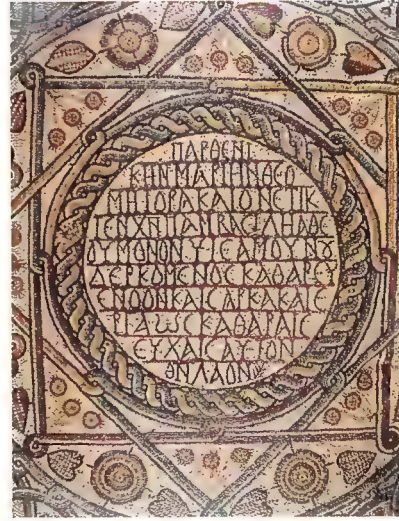 ΠΑΡΘΕΝΙ
ΚΗΝΜΑΡΙΗΝΘΕΟ
ΜΗΤΟΡΑΚΑΙΟΝΕΤΙΚ
ΤΕΝΧΝΠΑΜΒΑϹΙΛΗΑΘΕ
ΟΥΜΟΝΟΝΥΙΕΑΜΟΥΝȢ
ΔΕΡΚΟΜΕΝΟϹΚΑΘΑΡΕΥ
ΕΝΟΟΝΚΑΙϹΑΡΚΑΚΑΙΕ
ΡΓΑΩϹΚΑΘΑΡΑΙϹ
ΕΥΧΑΙϹΑΥΤΟΝ